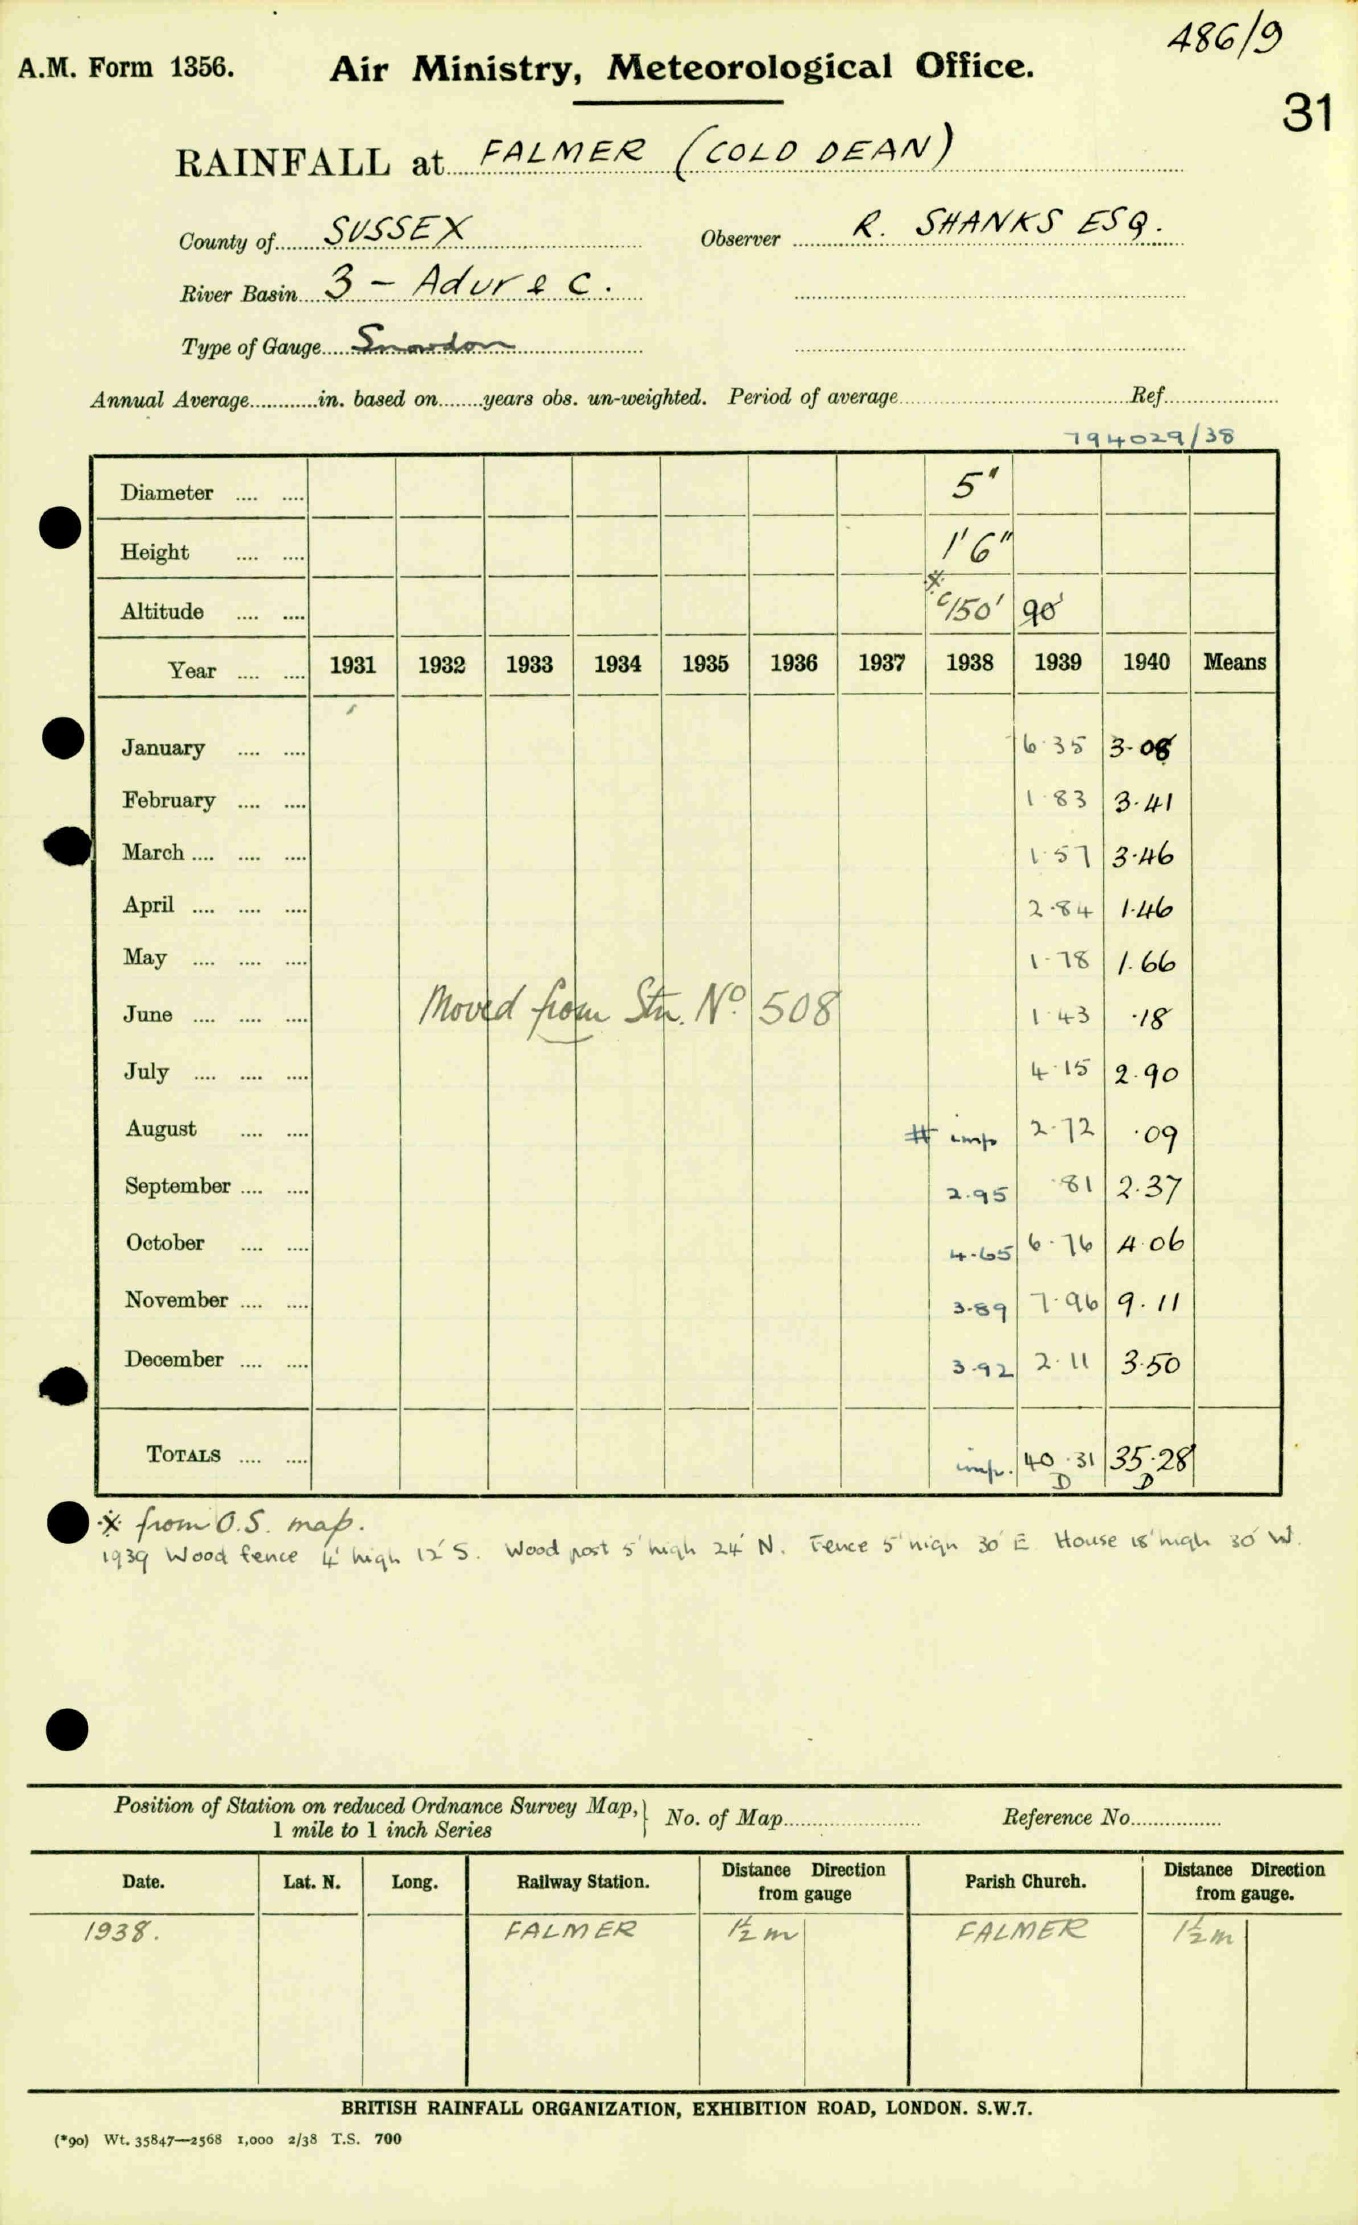 486/9
A.M. Form 1356. Air Ministry, Meteorological Office.
31
RAINFALL at FALMER (COLD DEAN)
County of SUSSEX Observer R. SHANKS ESQ.
River Basin 3 - Adur & C.
Type of Gauge Snowdon
Annual Average............in. based on........years obs. un-weighted. Period of average Ref.
794029/38
Diameter .... .... 5"
Height .... .... 1'6"
Altitude .... .... ※ c/150' 90'
Year .... .... 1931 1932 1933 1934 1935 1936 1937 1938 1939 1940 Means
January .... .... 6.35 3.08
February .... .... 1.83 3.41
March .... .... .... 1.57 3.46
April .... .... .... 2.84 1.46
May .... .... .... 1.78 1.66
June .... .... .... Moved from Stn. No 508 1.43 .18
July .... .... .... 4.15 2.90
August .... .... # imp 2.72 .09
September .... .... 2.95 .81 2.37
October .... .... 4.65 6.76 4.06
November .... .... 3.89 7.96 9.11
December .... .... 3.92 2.11 3.50
TOTALS .... .... imp. 40.31 35.28
D D
※ from O.S. map.
1939 Wood fence 4' high 12' S. Wood post 5' high 24' N. Fence 5' high 30' E. House 18' high 30' W.
Position of Station on reduced Ordnance Survey Map, 1 mile to 1 inch Series } No. of Map Reference No.
Date. Lat. N. Long. Railway Station. Distance Direction from gauge Parish Church. Distance Direction from gauge.
1938. FALMER 1½ m FALMER 1½ m
BRITISH RAINFALL ORGANIZATION, EXHIBITION ROAD, LONDON. S.W.7.
(*90) Wt. 35847—2568 1,000 2/38 T.S. 700